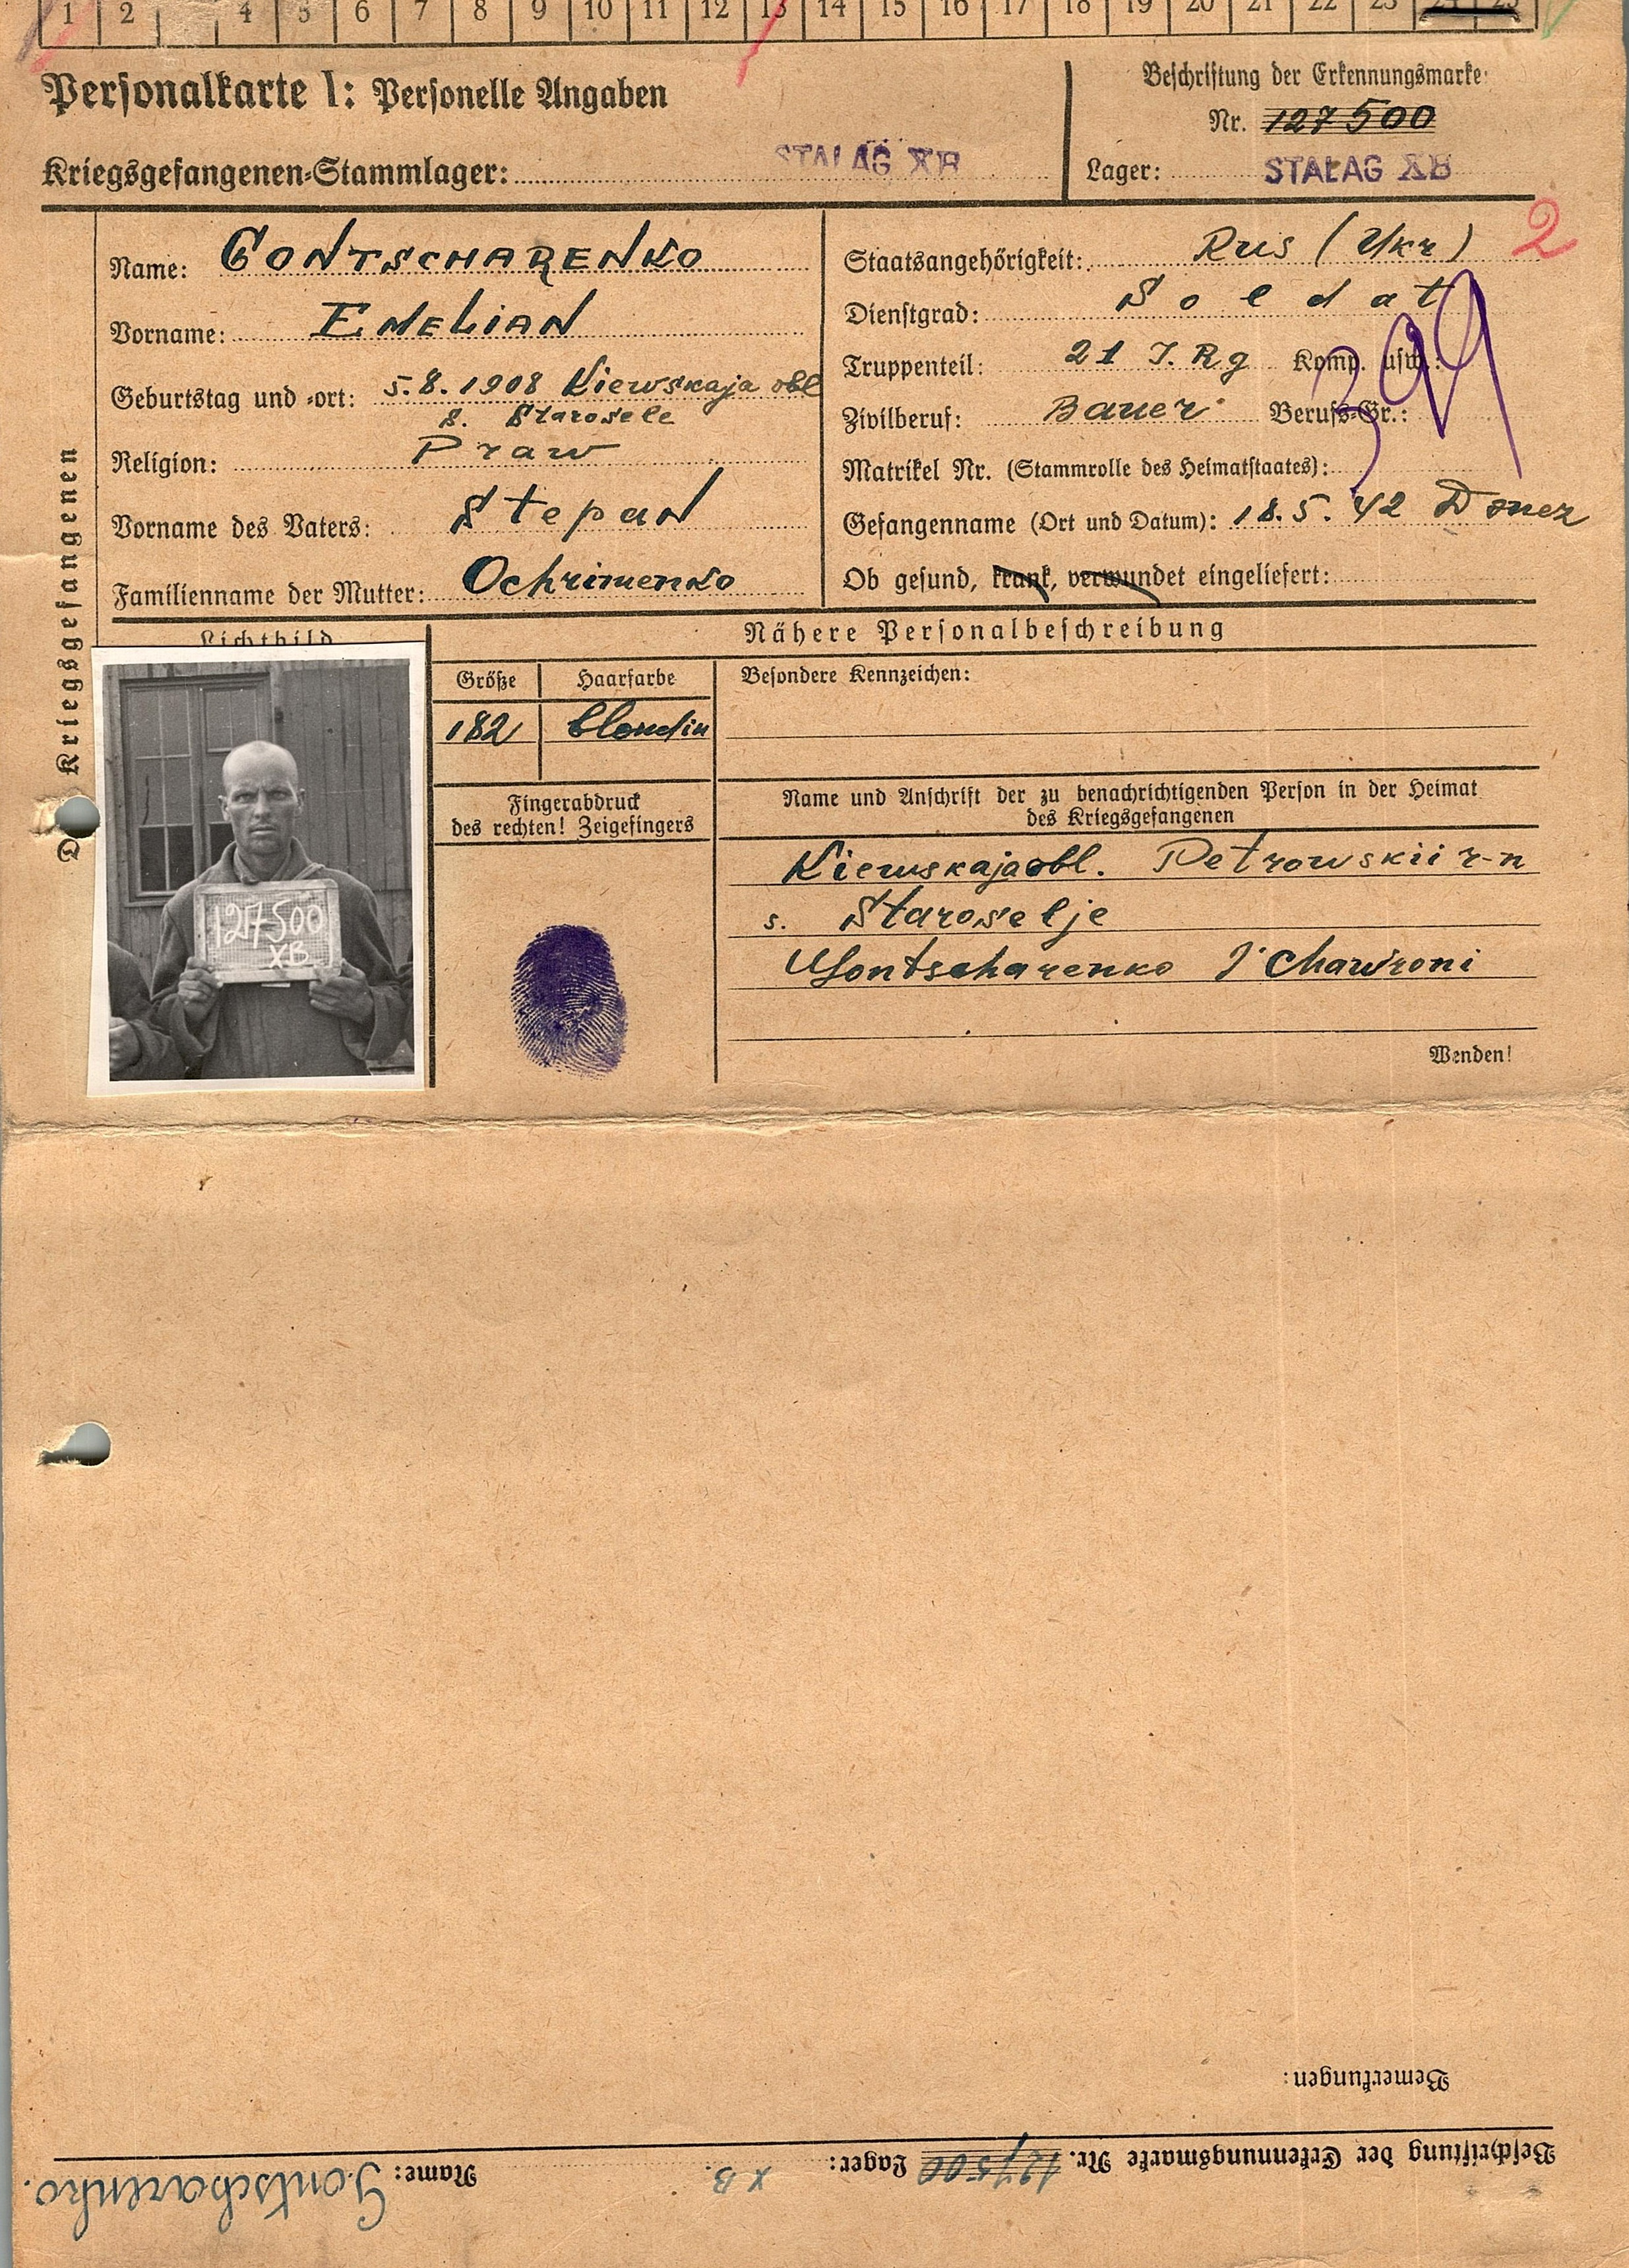 1 2 4 5 6 7 8 9 10 11 12 13 14 15 16 17 18 19 20 21 22 23 24 25
Personalkarte I: Personelle Angaben
Kriegsgefangenen-Stammlager: STALAG XB
Beschriftung der Erkennungsmarke
Nr. 127500
Lager: STALAG XB
Des Kriegsgefangenen
Name: GONTSCHARENKO
Vorname: EMELIAN
Geburtstag und -ort: 5.8.1908 Kiewskaja obl
s. Starosele
Religion: Praw
Vorname des Vaters: Stepan
Familienname der Mutter: Ochrimenko
Staatsangehörigkeit: Rus (Ukr) 2
Dienstgrad: Soldat
Truppenteil: 21 I.Rg Komp. usw.:
399
Zivilberuf: Bauer Berufs-Gr.:
Matrikel Nr. (Stammrolle des Heimatstaates):
Gefangenname (Ort und Datum): 18.5.42 Donez
Ob gesund, krank, verwundet eingeliefert:
Lichtbild
127500
XB
Nähere Personalbeschreibung
Größe Haarfarbe
182 blondin
Besondere Kennzeichen:
Fingerabdruck
des rechten! Zeigefingers
Name und Anschrift der zu benachrichtigenden Person in der Heimat
des Kriegsgefangenen
Kiewskaja obl. Petrowskii r-n
s. Staroselje
Gontscharenko Chawroni
Wenden!
Bemerkungen:
Beschriftung der Erkennungsmarke Nr. 127500 Lager: XB. Name: Gontscharenko.